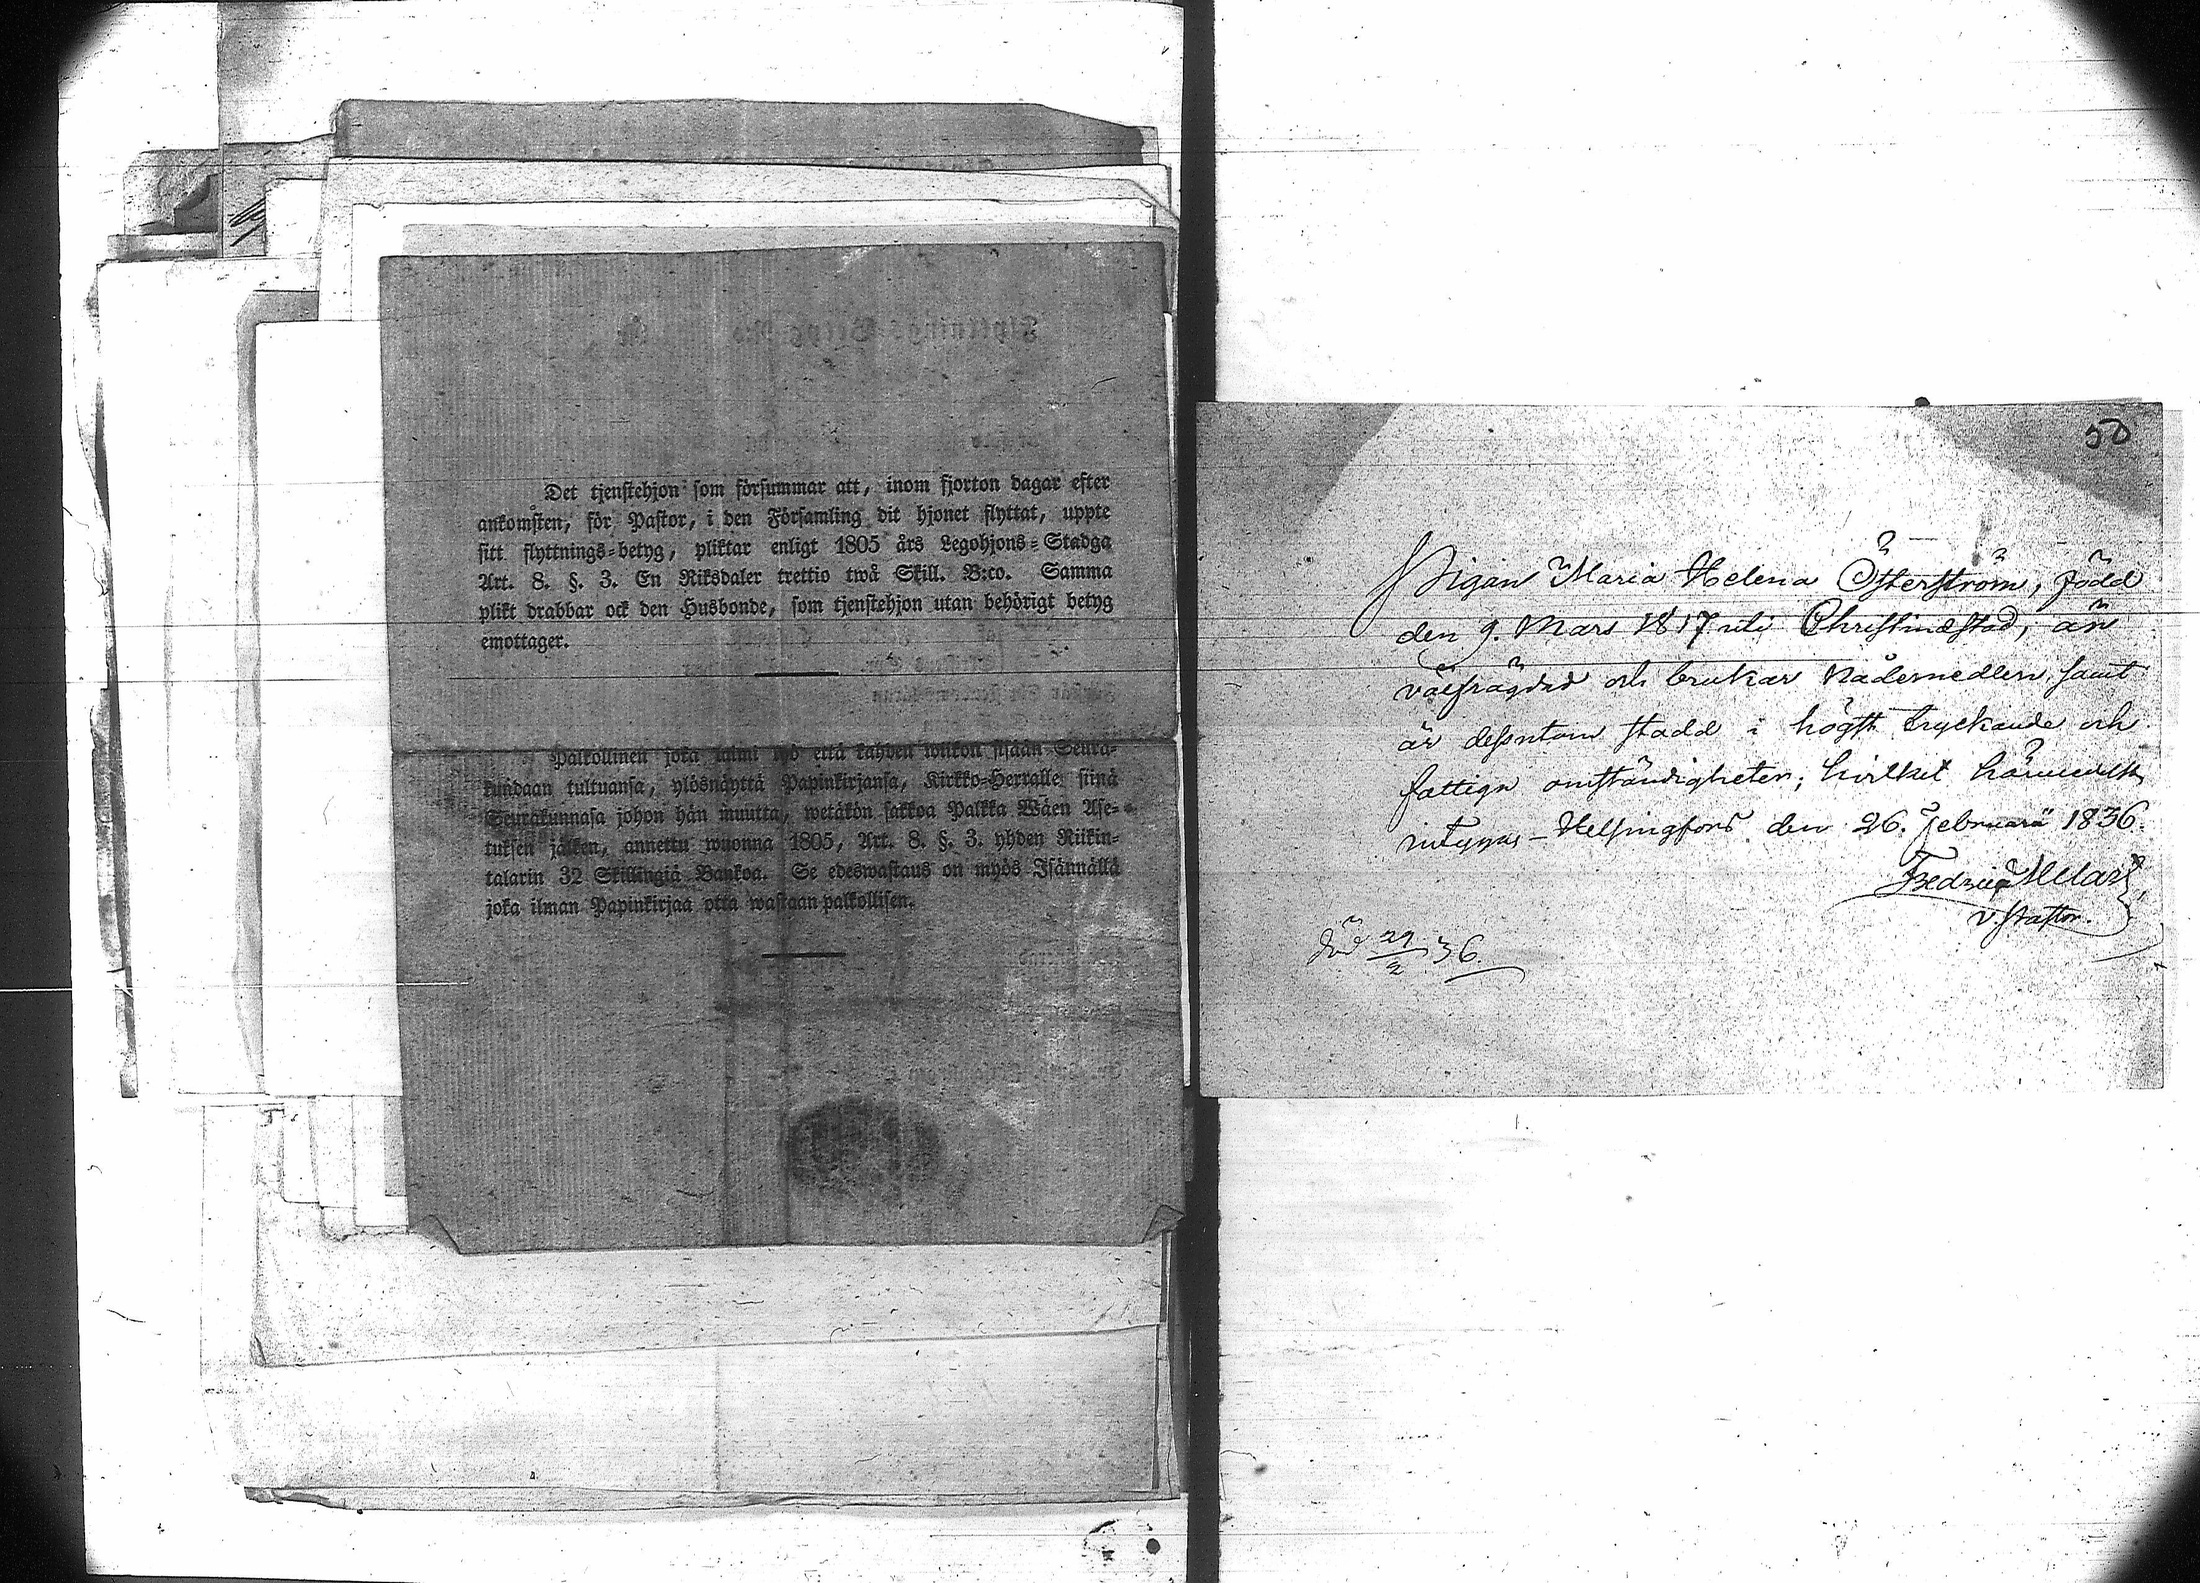 Det tjenstehjon som försummar att, inom fjorton dagar efter
ankomsten, för Pastor, i den Församling dit hjonet flyttat, uppte
sitt flyttnings-betyg, pliktar enligt 1805 års Legohjons-Stadga
Art. 8. §. 3. En Riksdaler trettio twå Skill. B:co. Samma
plikt drabbar ock den Husbonde, som tjenstehjon utan behörigt betyg
emottager.
Palkollinen joka laimi lyö että kahden wiikon sisään Seura-
kundaan tultuansa, ylösnäyttä Papinkirjansa, Kirkko-Herralle siinä
Seurakunnasa johon hän muutta, wetäkön sakkoa Palkka Wäen Ase-
tuksen jälken, annettu wuonna 1805, Art. 8. §. 3. yhden Riikin-
talarin 32 Skillingiä Bankoa. Se edeswastaus on myös Isännällä
joka ilman Papinkirjaa otta wastaan palkollisen.
50
Pigan Maria Helena Österström, född
den 9. Mars 1817 uti Christinæstad, är
välfrägdad och brukar Nådemedlen, samt
är dessutom stadd i högst tryckande och
fattiga omständigheter; hvilket härmedelst
intygas – Helsingfors den 26. Februarii 1836.
v. Pastor.
död 29/2 36.